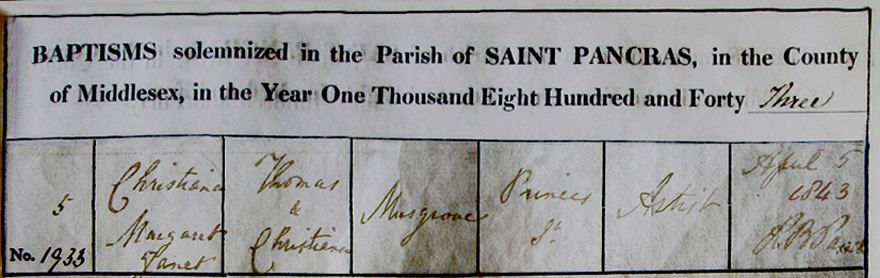 BAPTISMS solemnized in the Parish of SAINT PANCRAS, in the County
of Middlesex, in the Year One Thousand Eight Hundred and Forty Three
5
No. 1933
Christiana
Margaret
Janet
Thomas
&
Christiana
Musgrove
Princes
St.
Artist
April 5
1843